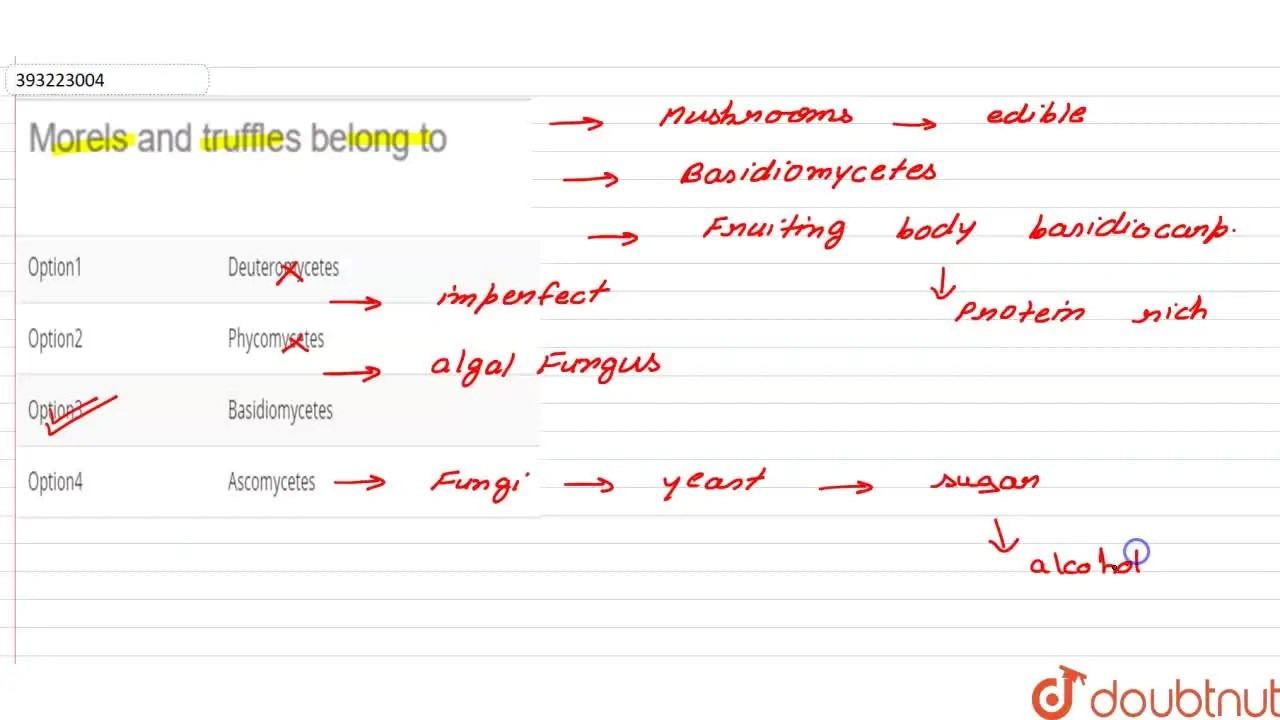 393223004
Morels and truffles belong to
→ Mushrooms → edible
→ Basidiomycetes
→ Fruiting body basidiocarp.
↓
Protein rich
Option1 Deuteromycetes
→ imperfect
Option2 Phycomycetes
→ algal Fungus
Option3 Basidiomycetes
Option4 Ascomycetes → Fungi → yeast → sugar
↓
alcohol
doubtnut